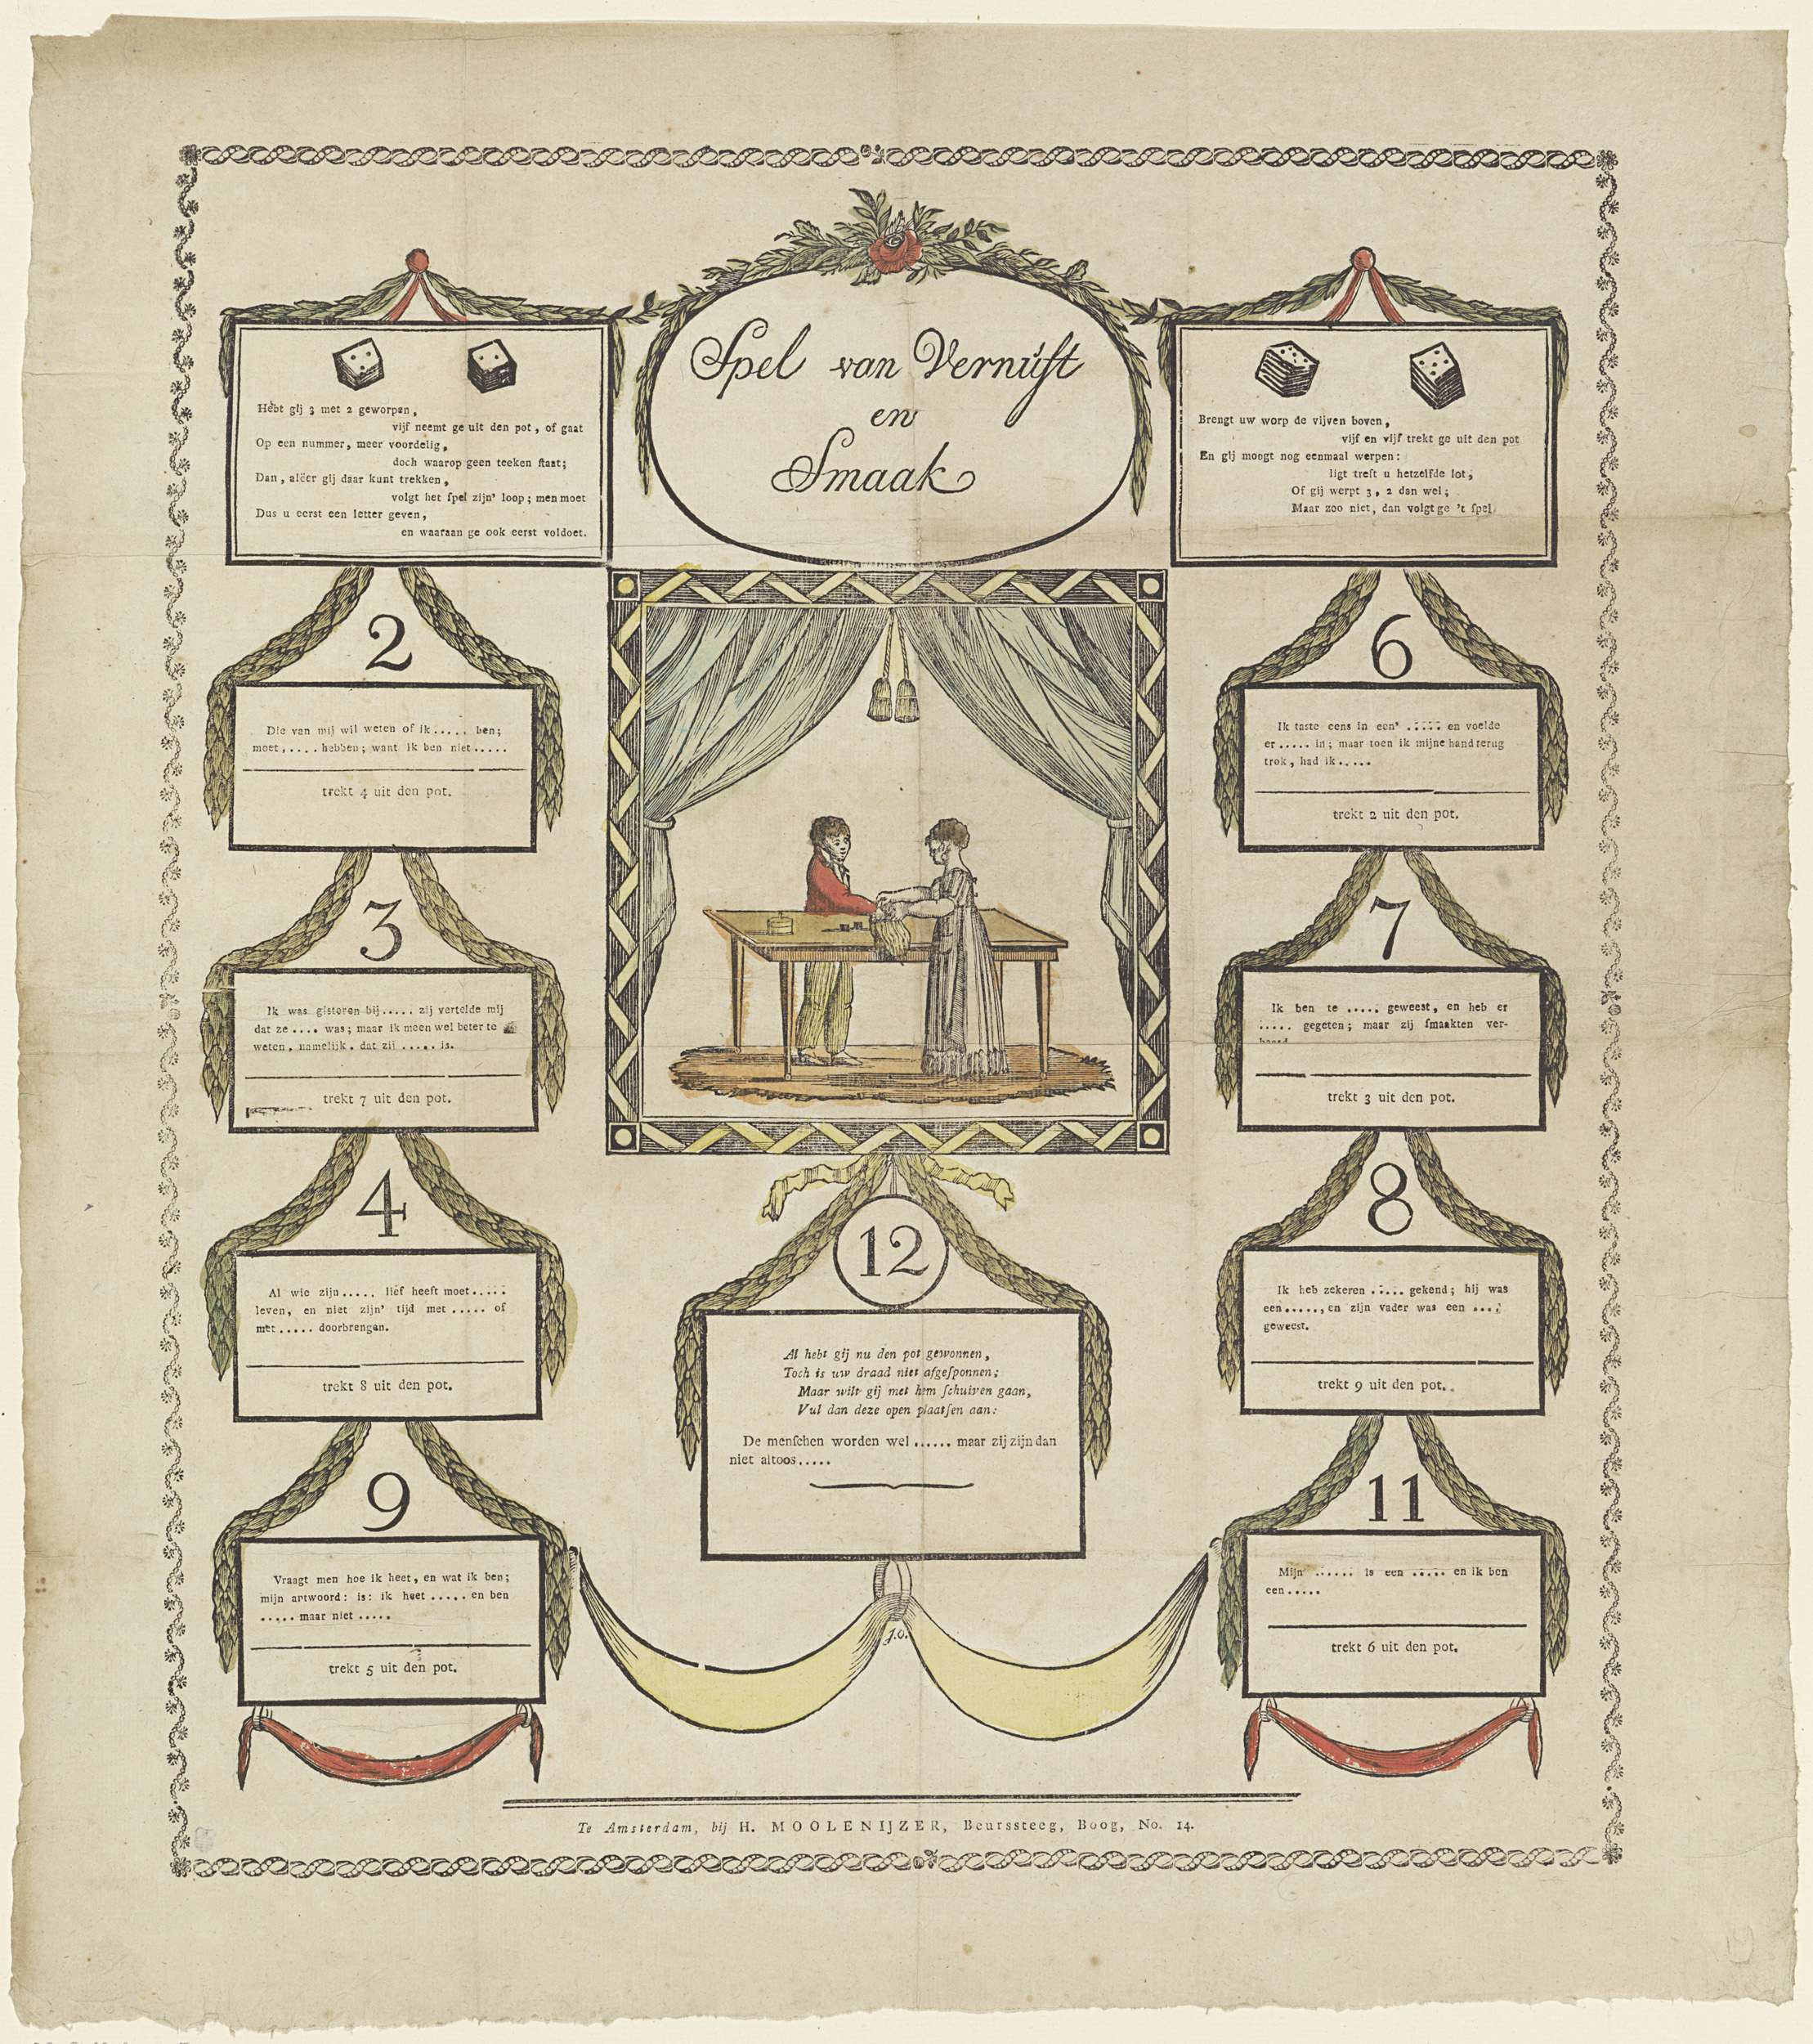 Spel van Vernuft
en
Smaak
Hebt gij 3 met 2 geworpen,
vijf neemt ge uit den pot, of gaat
Op een nummer, meer voordelig,
doch waarop geen teeken ſtaat;
Dan, aléér gij daar kunt trekken,
volgt het ſpel zijn' loop; men moet
Dus u eerst een letter geven,
en waaraan ge ook eerst voldoet.
Brengt uw worp de vijven boven,
vijf en vijf trekt ge uit den pot
En gij moogt nog eenmaal werpen:
ligt treft u hetzelfde lot,
Of gij werpt 3, 2 dan wel;
Maar zoo niet, dan volgt ge 't ſpel
2
Die van mij wil weten of ik..... ben;
moet,.... hebben; want ik ben niet.....
trekt 4 uit den pot.
3
Ik was gisteren bij..... zij vertelde mij
dat ze .... was; maar ik meen wel beter te
weten, namelijk, dat zij ..... is.
trekt 7 uit den pot.
4
Al wie zijn..... lief heeft moet.....
leven, en niet zijn' tijd met ..... of
met ..... doorbrengen.
trekt 8 uit den pot.
9
Vraagt men hoe ik heet, en wat ik ben;
mijn artwoord: is: ik heet ..... en ben
..... maar niet .....
trekt 5 uit den pot.
6
Ik taste eens in een' ..... en voelde
er ..... in; maar toen ik mijne hand rerug
trok, had ik.....
trekt 2 uit den pot.
7
Ik ben te ..... geweest, en heb er
..... gegeten; maar zij ſmaakten ver-
trekt 3 uit den pot.
8
Ik heb zekeren ..... gekend; hij was
een....., en zijn vader was een ....
geweest.
trekt 9 uit den pot.
11
Mijn ...... is een ..... en ik ben
een.....
trekt 6 uit den pot.
12
Al hebt gij nu den pot gewonnen,
Toch is uw draad niet afgeſponnen;
Maar wilt gij met hem ſchuiven gaan,
Vul dan deze open plaatſen aan:
De menſchen worden wel ...... maar zij zijn dan
niet altoos.....
J.O.
Te Amsterdam, bij H. MOOLENIJZER, Beurssteeg, Boog, No. 14.